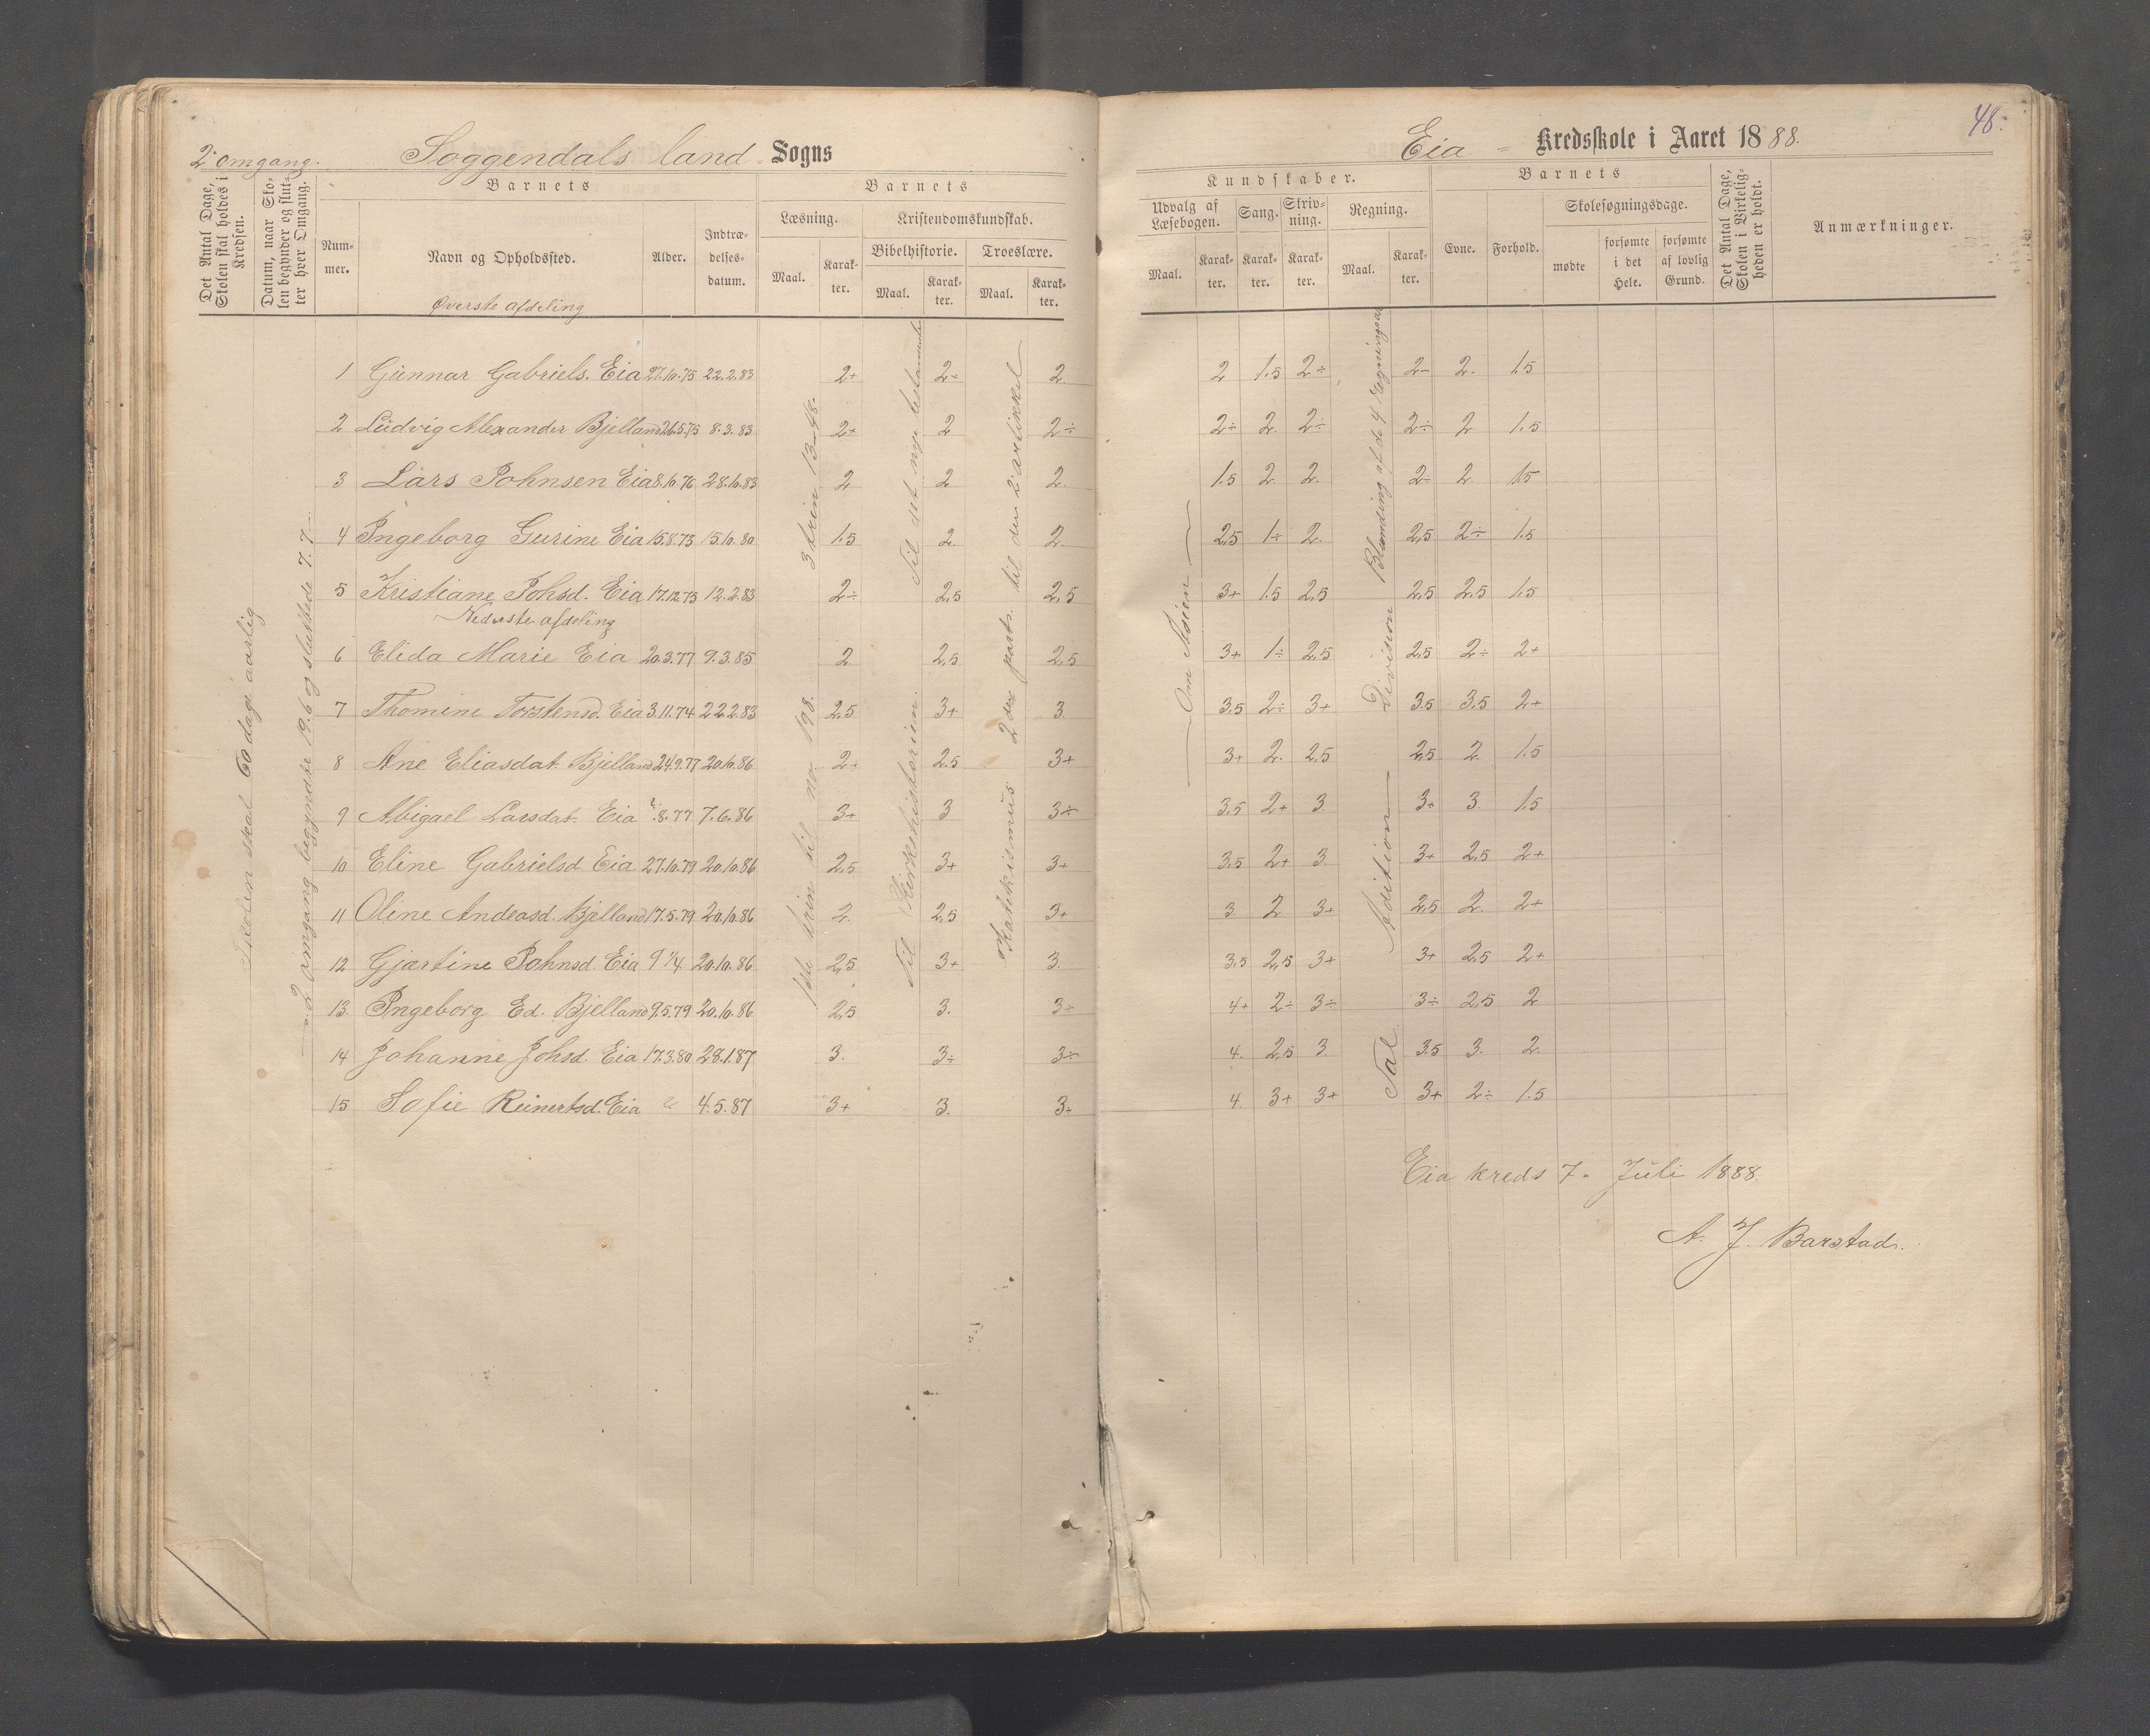 2. omgang.
Soggendals land Sogns
Det Antal Dage, Skolen skal holdes i Kredsen.
Datum, naar Skolen begynder og slutter hver Omgang.
Barnets
Nummer.
Navn og Opholdssted.
Alder.
Indtrædelsesdatum.
Barnets
Læsning.
Maal.
Karakter.
Kristendomskundskab.
Bibelhistorie.
Maal.
Karakter.
Troeslære.
Maal.
Karakter.
Øverste afdeling
1 Gunnar Gabriels. Eia 27.10.75 22.2.83 2+ 2÷ 2.
2 Ludvig Alexander Bjelland 26.5.75 8.3.83 2+ 2 2÷
3 Lars Johnsen Eia 8.10.76 28.10.83 2 2 2.
4 Ingeborg Gurine Eia 15.8.73 15.10.80 1.5 2. 2.
5 Kristiane Johsd. Eia 17.12.73 12.2.83 2÷ 2,5 2,5
Nederste afdeling
6 Elida Marie Eia 20.3.77 9.3.85 2 2,5 2,5
7 Thomine Torstensd. Eia 3.11.74 22.2.83 2.5 3+ 3.
8 Ane Eliasdat. Bjelland 24.9.77 20.10.86 2÷ 2.5 3+
9 Abigael Larsdat. Eia 8.77 7.6.86 3+ 3 3÷
10 Eline Gabrielsd Eia 27.10.79 20.10.86 2,5 3+ 3+
11 Oline Andeasd. Bjelland 17.5.79 20.10.86 2. 2,5 3+
12 Gjartine Johnsd. Eia 9 1/4 20.10.86 2,5 3+ 3.
13. Ingeborg Ed. Bjelland 9.5.79 20.10.86 2,5 3. 3÷
14 Johanne Johsd. Eia 17.3.80 28.1.87 3. 3÷ 3÷
15 Sofie Reinertsd. Eia 4.5.87 3+ 3. 3+
Skolen skal 60 dage aarlig
2. omgang begyndte 19.6 og sluttede 7.7.
3 trin 13-48.
1ste trin til no 198.
Til det nye testamente
Til Kirkehistorien.
2 den part. til den 2. artikkel
Katekismus
48.
Eia - Kredsskole i Aaret 1888.
Kundskaber.
Udvalg af Læsebogen.
Maal.
Karakter.
Sang.
Karakter.
Skrivning.
Karakter.
Regning.
Maal.
Karakter.
Barnets
Evne.
Forhold.
Skolesøgningsdage.
mødte
forsømte i det Hele.
forsømte af lovlig Grund.
Det Antal Dage, Skolen i Virkeligheden er holdt.
Anmærkninger.
2 1.5 2÷ 2- 2. 1.5
2÷ 2. 2÷ 2÷ 2 1.5
1.5 2 2. 2÷ 2. 1.5
2,5 1÷ 2. 2,5 2÷ 1.5
3+ 1.5 2,5 2,5 2.5 1.5
3+ 1÷ 2,5 2,5 2÷ 2+
3.5 2÷ 3+ 3.5 3.5 2+
3+ 2. 2,5 2,5 2. 1.5
3.5 2+ 3 3+ 3. 1.5
3.5 2+ 3. 3+ 2,5 2+
3. 2 3+ 2,5 2. 2+
3,5 2,5 3+ 3+ 2,5 2+
4+ 2÷ 3÷ 3÷ 2,5 2
4. 2,5 3. 3.5 3. 2.
4. 3+ 3+ 3+ 2÷ 1.5
Om Asien
Blanding af de 4 regningsar
Division
Adition
Tal
Eia kreds 7. Juli 1888.
A. J. Barstad.